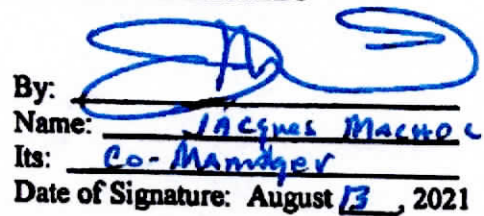 By:
Name: Jacques
Its: Co-Manager
Date of Signature: August 13, 2021